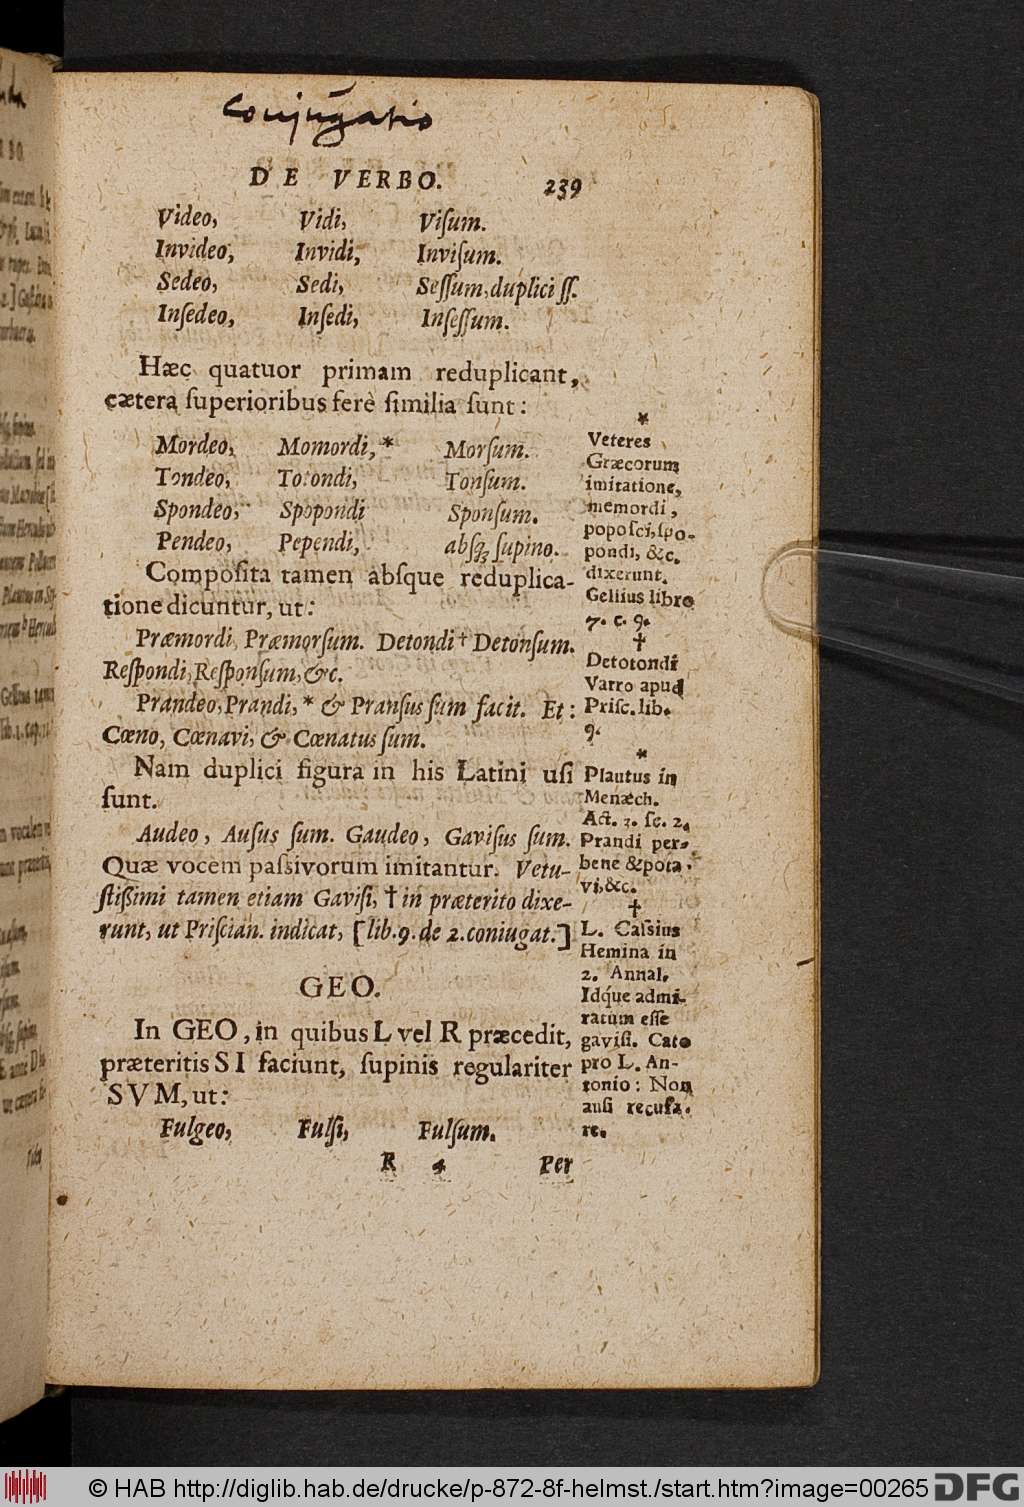 Conjugatio
DE VERBO. 239
Video, Vidi, Viſum.
Invideo, Invidi, Inviſum.
Sedeo, Sedi, Seſſum, duplici ſſ.
Inſedeo, Inſedi, Inſeſſum.
Hæc quatuor primam reduplicant,
cætera ſuperioribus ferè ſimilia ſunt:
Mordeo, Momordi,* Morſum.
Tondeo, Totondi, Tonſum.
Spondeo, Spopondi Sponſum.
Pendeo, Pependi, abſq; ſupino.
Compoſita tamen abſque reduplica-
tione dicuntur, ut:
Præmordi, Præmorſum. Detondi † Detonſum.
Reſpondi, Reſponſum, &c.
Prandeo, Prandi, * & Pranſus ſum facit. Et:
Cœno, Cœnavi, & Cœnatus ſum.
Nam duplici figura in his Latini uſi
ſunt.
Audeo, Auſus ſum. Gaudeo, Gaviſus ſum.
Quæ vocem paſsivorum imitantur. Vetu-
ſtißimi tamen etiam Gaviſi, † in præterito dixe-
runt, ut Priſcian. indicat, [lib. 9. de 2. coniugat.]
GEO.
In GEO, in quibus L vel R præcedit,
præteritis SI faciunt, ſupinis regulariter
SVM, ut:
Fulgeo, Fulſi, Fulſum.
R 4 Per
*
Veteres
Græcorum
imitatione,
memordi,
popoſci, ſpo-
pondi, &c.
dixerunt.
Gellius libro
7. c. 9.
†
Detotondi
Varro apud
Priſc. lib.
9.
*
Plautus in
Menæch.
Act. 3. ſc. 2.
Prandi per-
bene & pota-
vi, &c.
†
L. Caſsius
Hemina in
2. Annal.
Idq́ue admi-
ratum eſſe
gaviſi. Cato
pro L. An-
tonio: Non
auſi recuſa-
re.
© HAB http://diglib.hab.de/drucke/p-872-8f-helmst./start.htm?image=00265 DFG